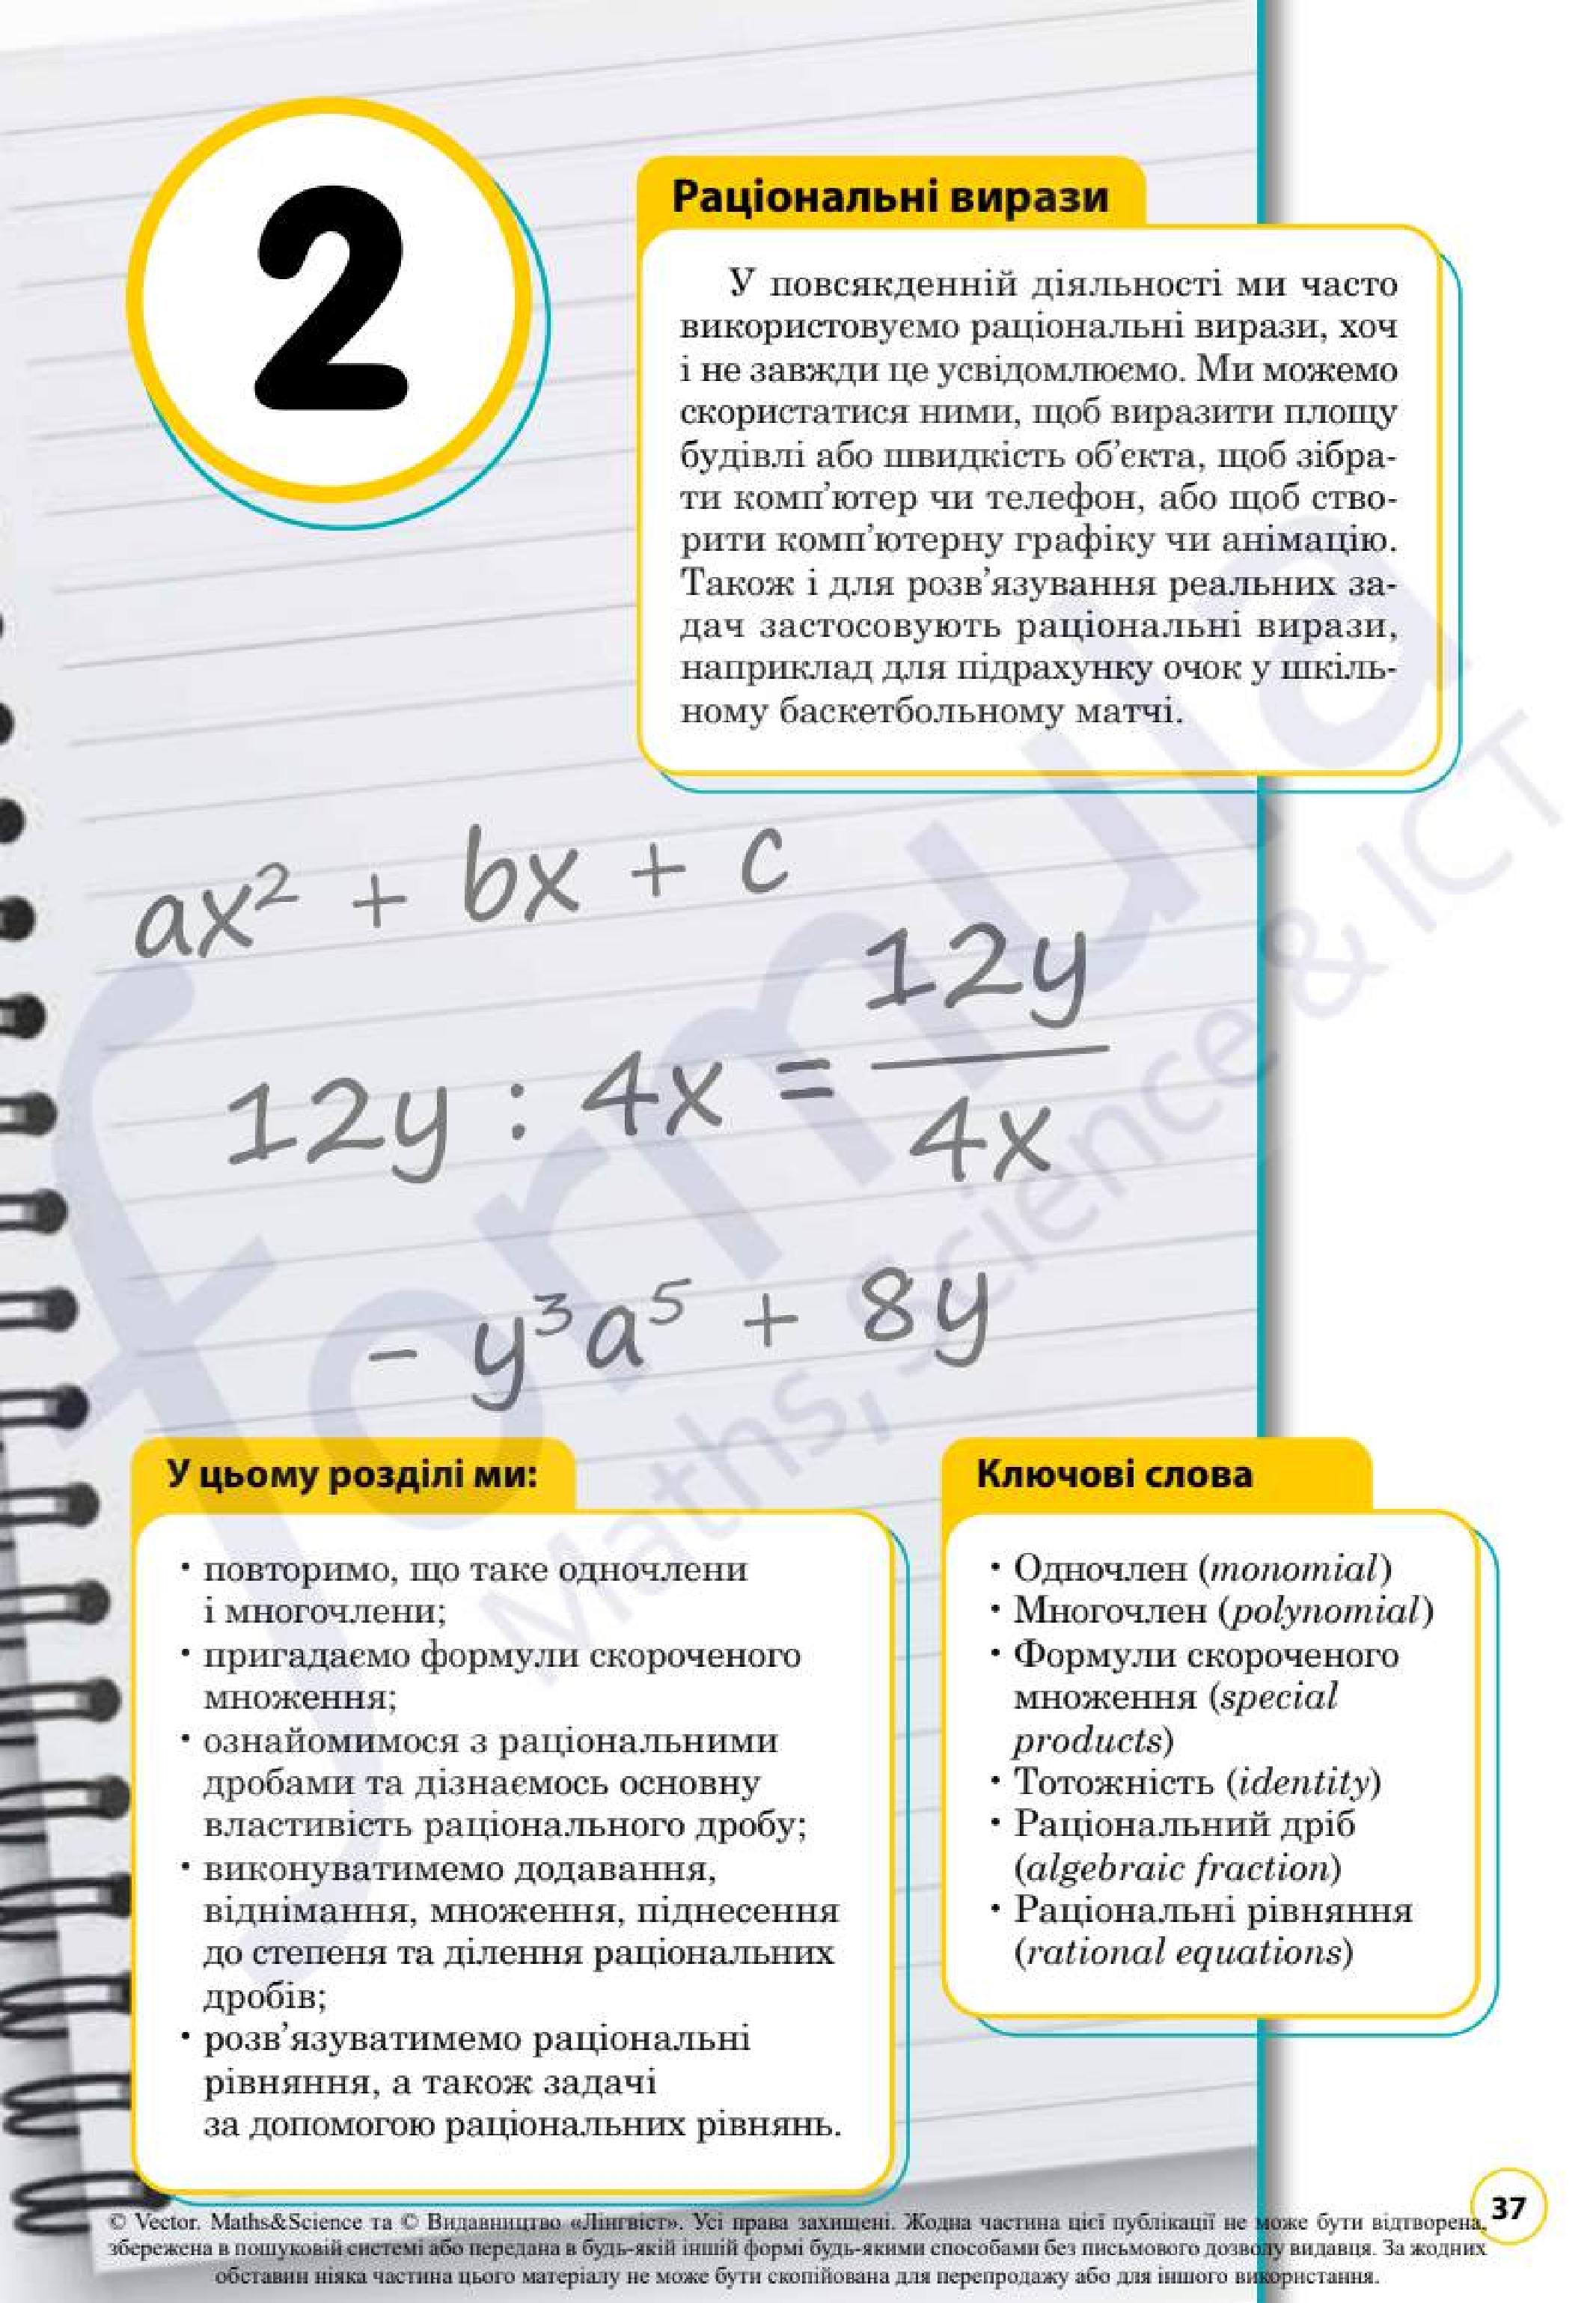 2
Раціональні вирази
У повсякденній діяльності ми часто
використовуємо раціональні вирази, хоч
і не завжди це усвідомлюємо. Ми можемо
скористатися ними, щоб виразити площу
будівлі або швидкість об’єкта, щоб зібра-
ти комп’ютер чи телефон, або щоб ство-
рити комп’ютерну графіку чи анімацію.
Також і для розв’язування реальних за-
дач застосовують раціональні вирази,
наприклад для підрахунку очок у шкіль-
ному баскетбольному матчі.
ax² + bx + c
12y : 4x = 12y / 4x
- y³a⁵ + 8y
У цьому розділі ми:
• повторимо, що таке одночлени
і многочлени;
• пригадаємо формули скороченого
множення;
• ознайомимося з раціональними
дробами та дізнаємось основну
властивість раціонального дробу;
• виконуватимемо додавання,
віднімання, множення, піднесення
до степеня та ділення раціональних
дробів;
• розв’язуватимемо раціональні
рівняння, а також задачі
за допомогою раціональних рівнянь.
Ключові слова
• Одночлен (monomial)
• Многочлен (polynomial)
• Формули скороченого
множення (special
products)
• Тотожність (identity)
• Раціональний дріб
(algebraic fraction)
• Раціональні рівняння
(rational equations)
formula
Maths, Science & ICT
37
© Vector. Maths&Science та © Видавництво «Лінгвіст». Усі права захищені. Жодна частина цієї публікації не може бути відтворена,
збережена в пошуковій системі або передана в будь-якій іншій формі будь-якими способами без письмового дозволу видавця. За жодних
обставин ніяка частина цього матеріалу не може бути скопійована для перепродажу або для іншого використання.